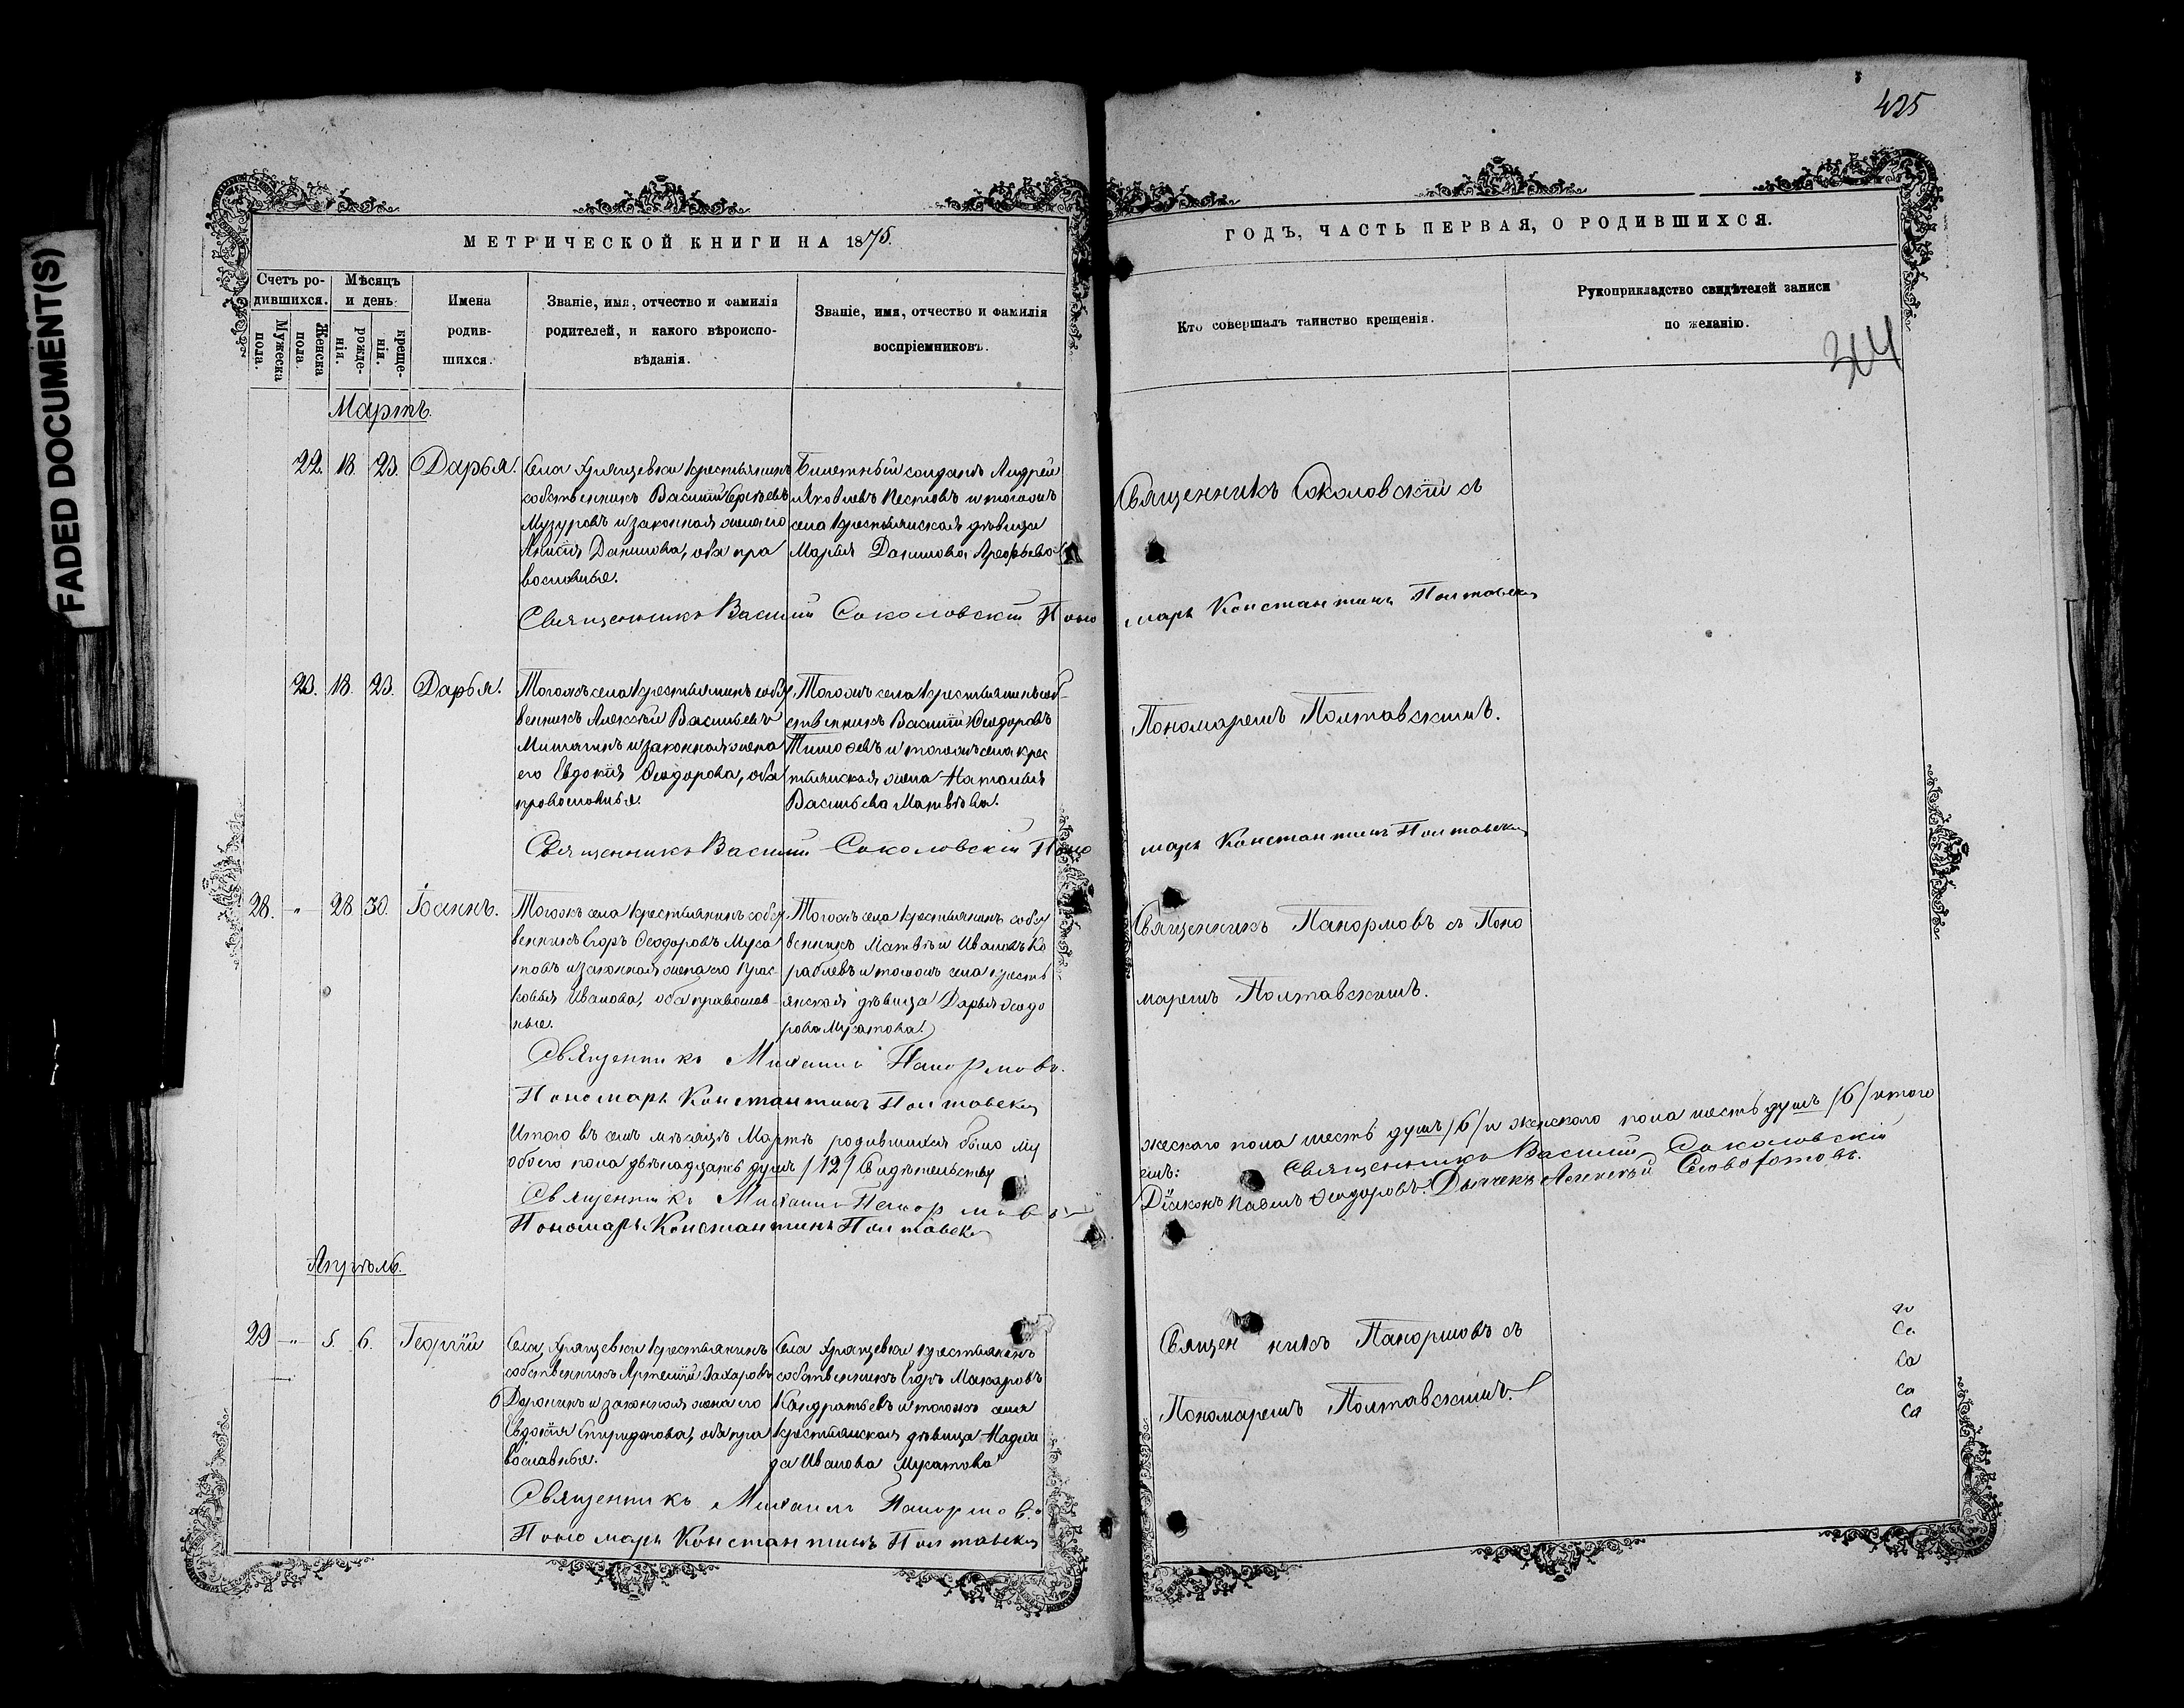 FADED DOCUMENT(S)
425
МЕТРИЧЕСКОЙ КНИГИ НА 1875.
ГОДЪ, ЧАСТЬ ПЕРВАЯ, О РОДИВШИХСЯ.
Счетъ родившихся.
Мужеска пола.
Женска пола
Мѣсяцъ и день
рожденія.
крещенія.
Имена родившихся.
Званіе, имя, отчество и фамилія
родителей, и какого вѣроисповѣданія.
Званіе, имя, отчество и фамилія
воспріемниковъ.
Кто совершалъ таинство крещенія.
Рукоприкладство свидѣтелей записи
по желанію.
Мартъ.
22. 18. 23. Дарья.
Села Хрящевки крестьянинъ
собственникъ Василій Сергѣевъ
Музуровъ и законная жена его
Анисія Данилова, оба пра
вославные.
Билетный солдатъ Андрей
Яковлевъ Пестовъ и тогожъ
села крестьянская дѣвица
Марья Данилова
Священникъ Соколовскій съ
Священникъ Василий Соколовский Поно
марь Константинъ Полтавски
23. 18. 23. Дарья.
Тогожъ села крестьянинъ собст
венникъ Алексѣй Васильевъ
Митягинъ и законная жена
его Евдокія Ѳеодорова, оба
православные.
Тогожъ села крестьянинъ соб
ственникъ Василій Ѳеодоровъ
Тимоѳевъ и тогожъ села крес
тьянская жена Наталья
Васильева Матвѣева.
Пономаремъ Полтавскимъ.
Священникъ Василий Соколовскій Поно
марь Константинъ Полтавски
28. " 28 30. Іоаннъ.
Тогожъ села крестьянинъ собст
венникъ Егоръ Ѳеодоровъ Муса
товъ и законная жена его Прас
ковья Иванова, оба православ
ные.
Тогожъ села крестьянинъ собст
венникъ Матвѣй Ивановъ Ко
раблевъ и тогожъ села кресть
янская дѣвица Дарья Ѳеодо
рова Мусатова.
Священникъ Панормовъ съ Поно
маремъ Полтавскимъ.
Священникъ Михаилъ Панормовъ.
Пономарь Константинъ Полтавски
Итого въ семъ мѣсяцѣ Мартѣ родившихся было му
жескаго пола шесть душъ /6/ и женскаго пола шесть душъ /6/ итого
обоего пола двѣнадцать душъ /12/ Свидѣтельству
емъ: Священникъ Василий Соколовскій
Священникъ Михаилъ Панормовъ
Діаконъ Павелъ Ѳеодоровъ. Дьячекъ Алексѣй
Пономарь Константинъ Полтавски
Апрѣль.
29 " 5. 6. Георгій
Села Хрящевки крестьянинъ
собственникъ Артемій Захаровъ
Доронинъ и законная жена его
Евдокія Спиридонова, оба пра
вославные.
Села Хрящевки крестьянинъ
собственникъ Егоръ Макаровъ
Кандратьевъ и тогожъ села
крестьянская дѣвица Надеж
да Иванова Мусатова
Священникъ Панормовъ съ
Пономаремъ Полтавскимъ.
Священникъ Михаилъ Панормовъ.
Пономарь Константинъ Полтавски